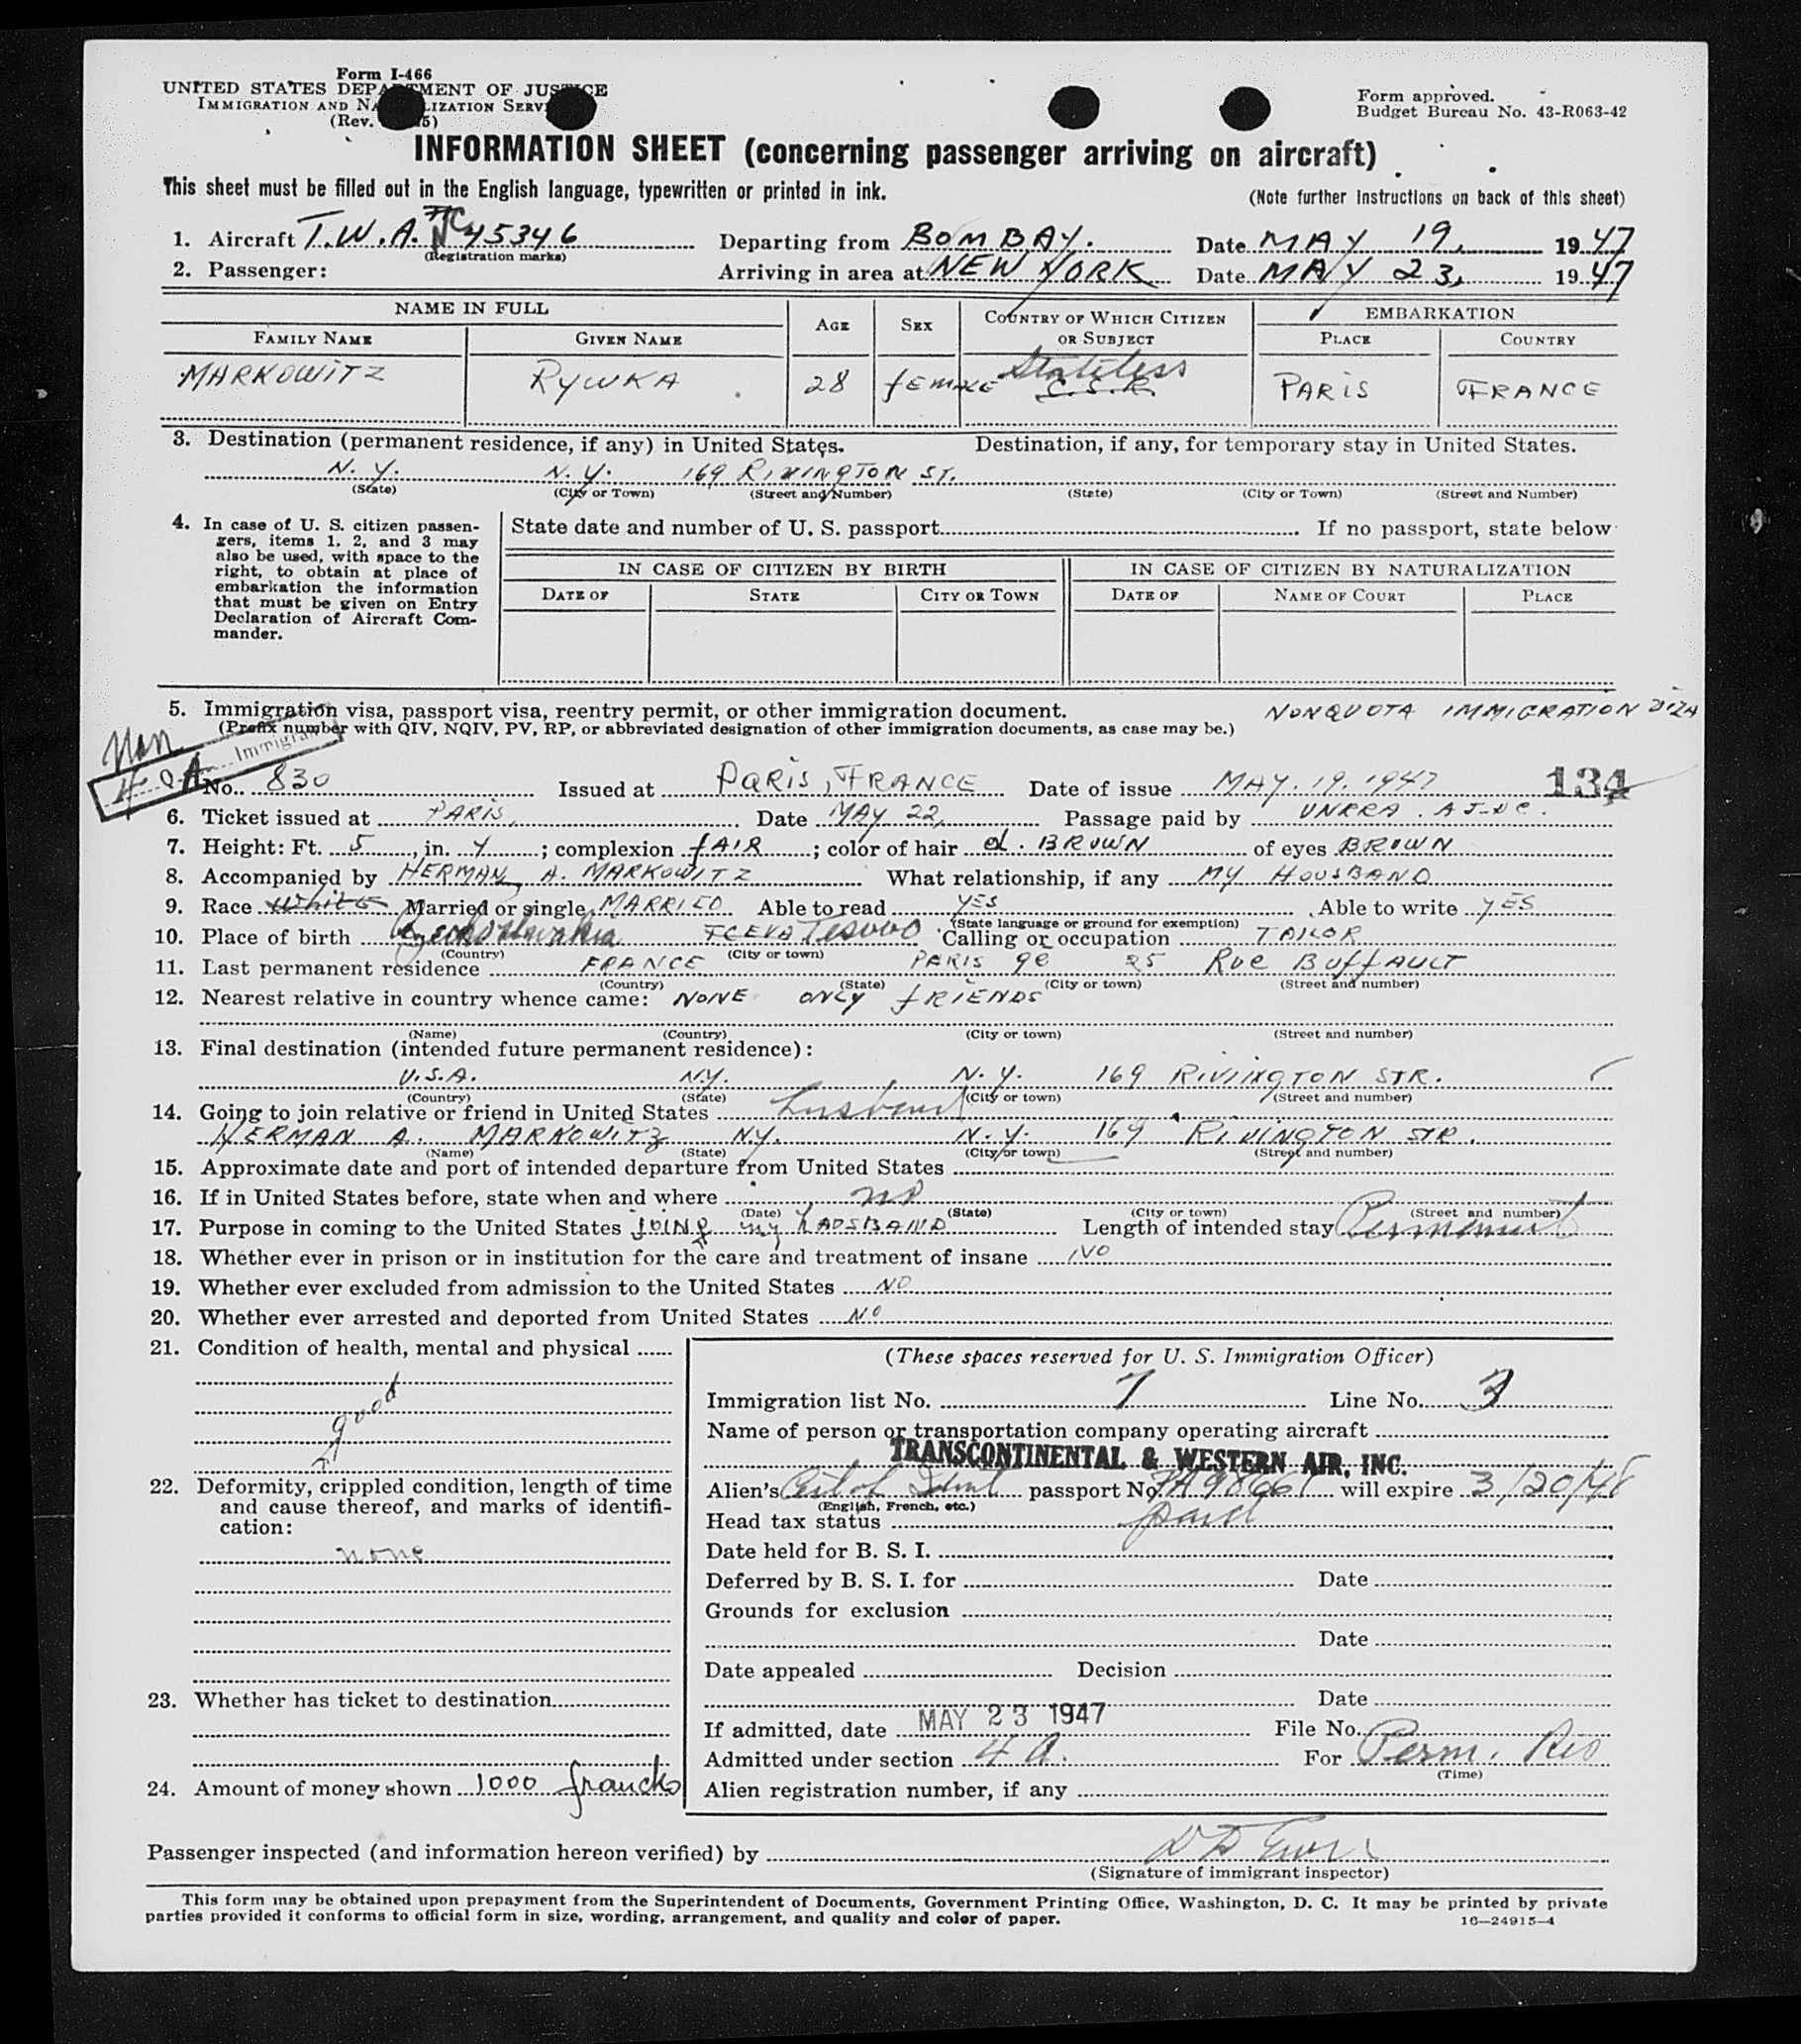 Form I-466
UNITED STATES DEPARTMENT OF JUSTICE
IMMIGRATION AND NATURALIZATION SERVICE
(Rev. 5)
Form approved.
Budget Bureau No. 43-R063-42
INFORMATION SHEET (concerning passenger arriving on aircraft)
This sheet must be filled out in the English language, typewritten or printed in ink. (Note further instructions on back of this sheet)
1. Aircraft T.W.A. NC 45346 Departing from BOMBAY. Date MAY 19, 1947
(Registration marks)
2. Passenger: Arriving in area at NEW YORK Date MAY 23, 1947
NAME IN FULL AGE SEX COUNTRY OF WHICH CITIZEN OR SUBJECT EMBARKATION
FAMILY NAME GIVEN NAME PLACE COUNTRY
Stateless
MARKOWITZ RYWKA 28 fEMALE C.S.R. PARIS FRANCE
3. Destination (permanent residence, if any) in United States. Destination, if any, for temporary stay in United States.
N.Y. N.Y. 169 RIVINGTON ST.
(State) (City or Town) (Street and Number) (State) (City or Town) (Street and Number)
4. In case of U. S. citizen passen-
gers, items 1, 2, and 3 may
also be used, with space to the
right, to obtain at place of
embarkation the information
that must be given on Entry
Declaration of Aircraft Com-
mander.
State date and number of U. S. passport If no passport, state below
IN CASE OF CITIZEN BY BIRTH IN CASE OF CITIZEN BY NATURALIZATION
DATE OF STATE CITY OR TOWN DATE OF NAME OF COURT PLACE
5. Immigration visa, passport visa, reentry permit, or other immigration document. NONQUOTA IMMIGRATION VIZA
(Prefix number with QIV, NQIV, PV, RP, or abbreviated designation of other immigration documents, as case may be.)
Non
Immigrant
No. 830 Issued at PARIS, FRANCE Date of issue MAY. 19. 1947 134
6. Ticket issued at PARIS, Date MAY 22, Passage paid by UNRRA. AJDC.
7. Height: Ft. 5, in. 4; complexion fAIR; color of hair d. BROWN of eyes BROWN
8. Accompanied by HERMAN A. MARKOWITZ What relationship, if any MY HOUSBAND
9. Race White Married or single MARRIED Able to read YES Able to write YES
(State language or ground for exemption)
10. Place of birth Czechoslovakia Calling or occupation TAILOR
(Country) (City or town)
11. Last permanent residence FRANCE PARIS 9e 25 RUE BUffAULT
(Country) (State) (City or town) (Street and number)
12. Nearest relative in country whence came: NONE ONLY fRIENDS
(Name) (Country) (City or town) (Street and number)
13. Final destination (intended future permanent residence):
U.S.A. N.Y. N.Y. 169 RIVINGTON STR.
(Country) (State) (City or town) (Street and number)
14. Going to join relative or friend in United States husband
HERMAN A. MARKOWITZ NY. N.Y. 169 RIVINGTON STR.
(Name) (State) (City or town) (Street and number)
15. Approximate date and port of intended departure from United States
16. If in United States before, state when and where no
(Date) (State) (City or town) (Street and number)
17. Purpose in coming to the United States JOING my HAOSBAND Length of intended stay Permanent
18. Whether ever in prison or in institution for the care and treatment of insane NO
19. Whether ever excluded from admission to the United States NO
20. Whether ever arrested and deported from United States NO
21. Condition of health, mental and physical
good
22. Deformity, crippled condition, length of time
and cause thereof, and marks of identifi-
cation:
none
23. Whether has ticket to destination
24. Amount of money shown 1000 francks
(These spaces reserved for U. S. Immigration Officer)
Immigration list No. 7 Line No. 3
Name of person or transportation company operating aircraft
TRANSCONTINENTAL & WESTERN AIR, INC.
Alien's Cert of Ident passport No. will expire 3/20/48
(English, French, etc.)
Head tax status paid
Date held for B. S. I.
Deferred by B. S. I. for Date
Grounds for exclusion
Date
Date appealed Decision
Date
If admitted, date MAY 23 1947 File No.
Admitted under section 4 a. For Perm. Res
(Time)
Alien registration number, if any
Passenger inspected (and information hereon verified) by
(Signature of immigrant inspector)
This form may be obtained upon prepayment from the Superintendent of Documents, Government Printing Office, Washington, D. C. It may be printed by private
parties provided it conforms to official form in size, wording, arrangement, and quality and color of paper. 16—24915-4